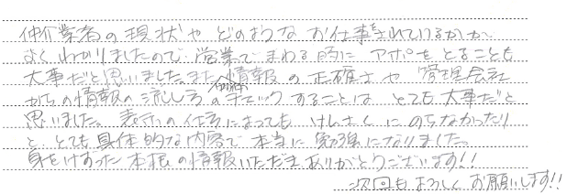 仲介業者の現状やどのようなお仕事をされているかが、
よくわかりましたので、営業でまわる時に アポをとることも
大事だと思いました。また、情報の正確さや 管理会社
からの情報の流し方の チェックすることは とても大事だと
思いました。表示の仕方によっても けんさくにのらなかったり
と とても具体的な内容で 本当に 勉強になりました。
身をけずった 本根の情報いただき ありがとうございます!!
次回もよろしく お願いします!!